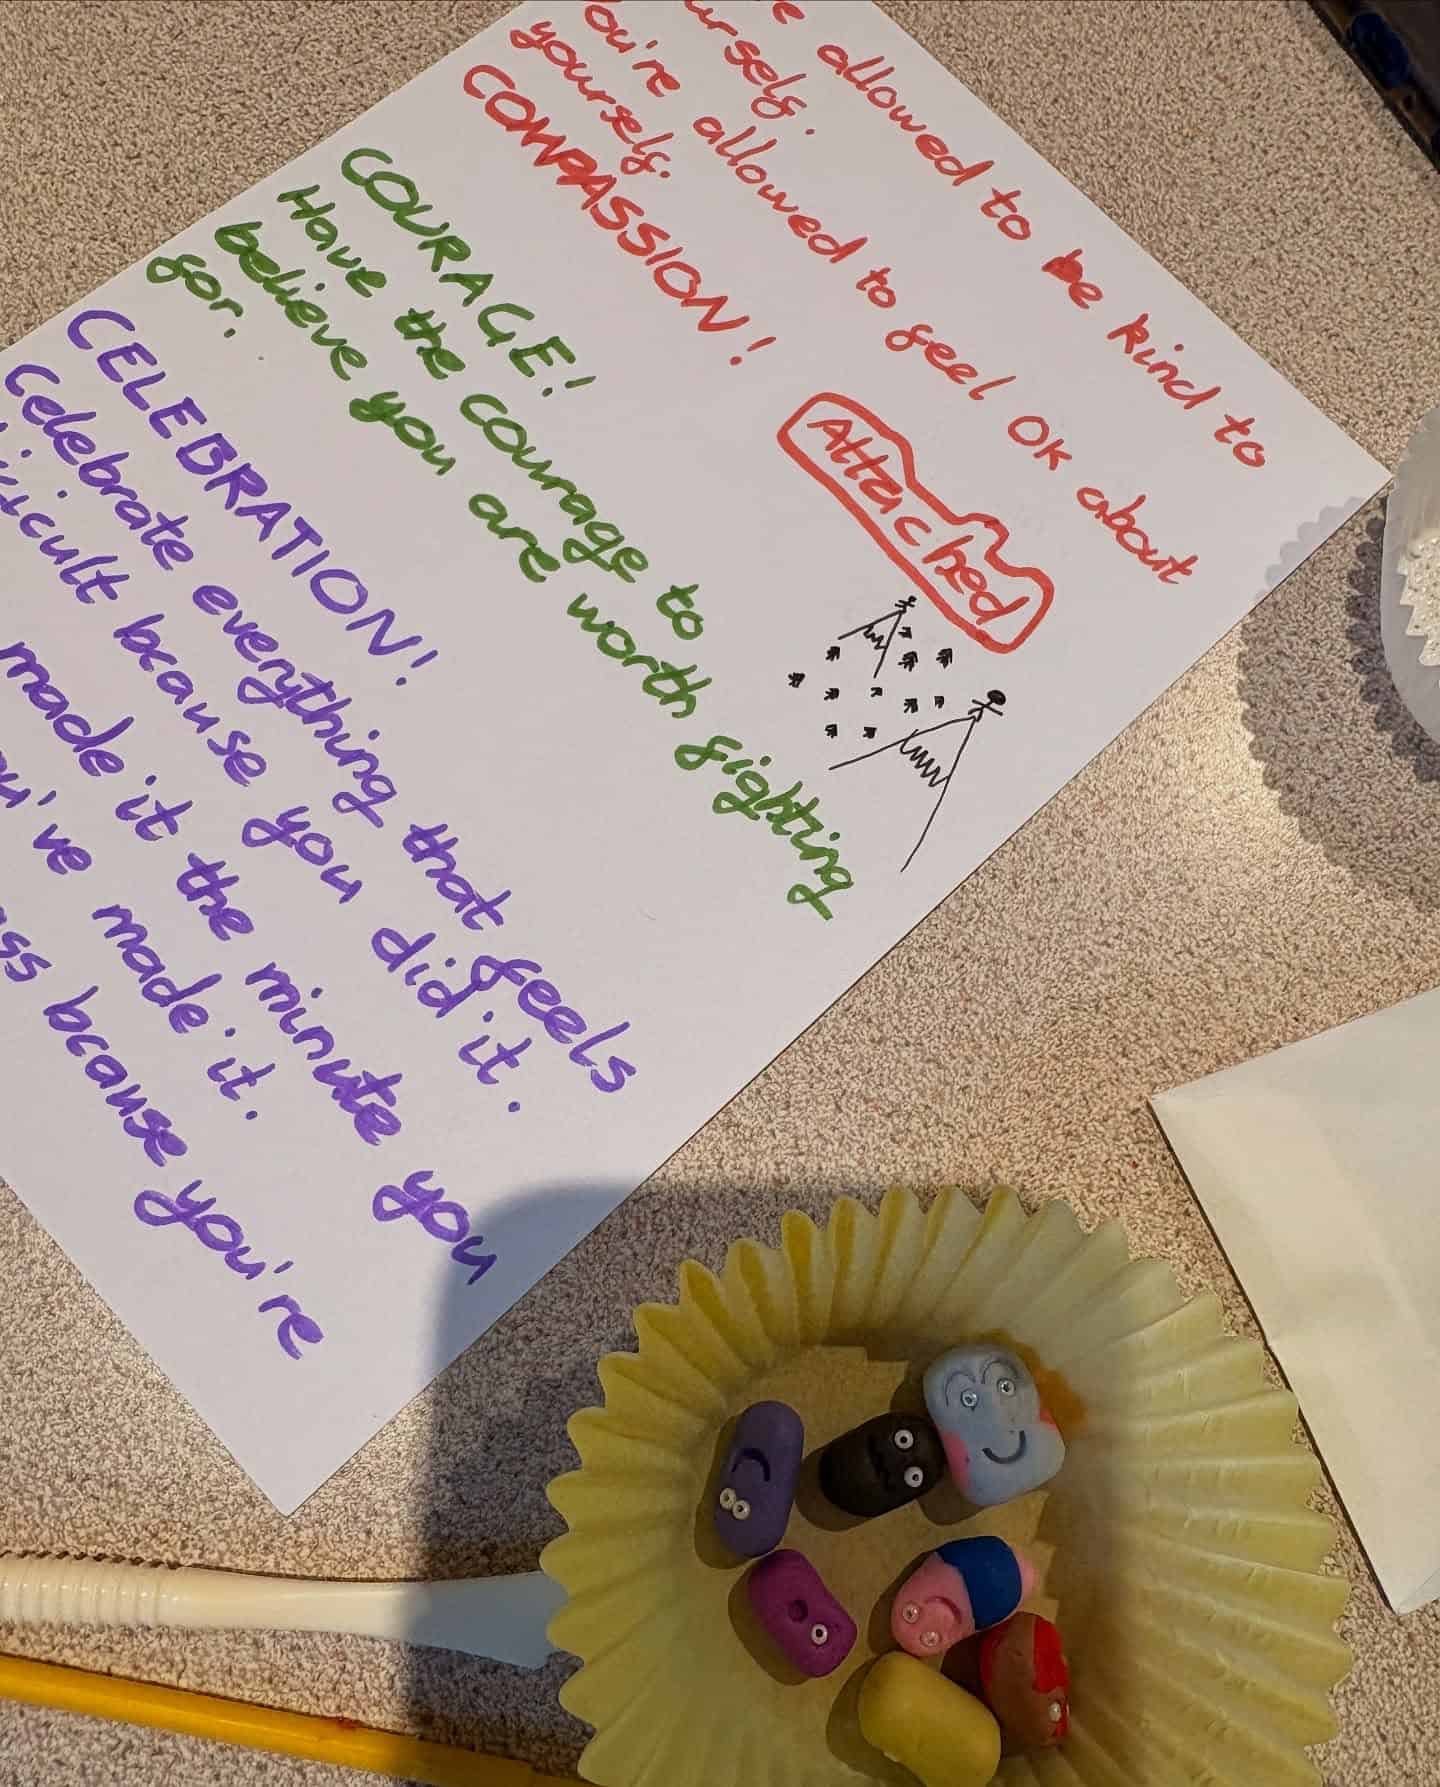 allowed to be kind to
urself.
You're allowed to feel OK about
yourself.
COMPASSION!
Attached
COURAGE!
Have the courage to
believe you are worth fighting
for.
CELEBRATION!
Celebrate everything that feels
bcause you did it.
made it the minute you
made it.
bcause you're